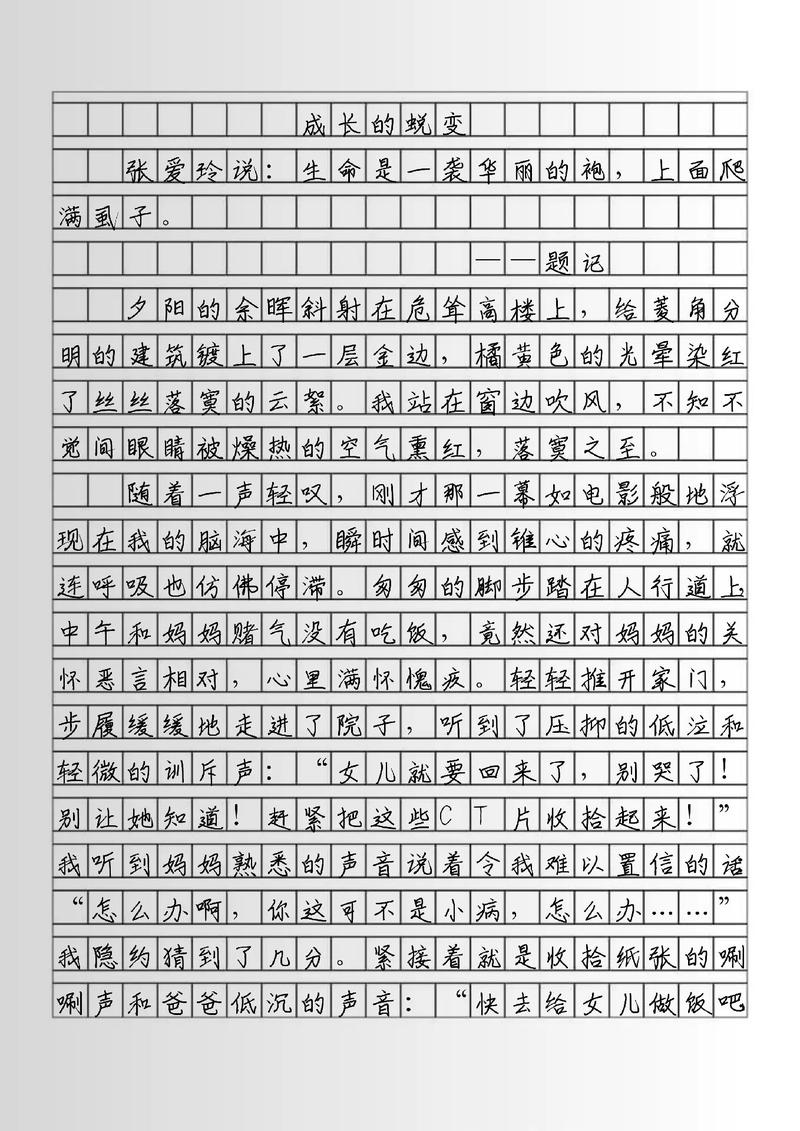 成长的蜕变
张爱玲说：生命是一袭华丽的袍，上面爬
满虱子。
——题记
夕阳的余晖斜射在危耸高楼上，给菱角分
明的建筑镀上了一层金边，橘黄色的光晕染红
了丝丝落寞的云絮。我站在窗边吹风，不知不
觉间眼睛被燥热的空气熏红，落寞之至。
随着一声轻叹，刚才那一幕如电影般地浮
现在我的脑海中，瞬时间感到锥心的疼痛，就
连呼吸也仿佛停滞。匆匆的脚步踏在人行道上，
中午和妈妈赌气没有吃饭，竟然还对妈妈的关
怀恶言相对，心里满怀愧疚。轻轻推开家门，
步履缓缓地走进了院子，听到了压抑的低泣和
轻微的训斥声：“女儿就要回来了，别哭了！
别让她知道！赶紧把这些CT片收拾起来！”
我听到妈妈熟悉的声音说着令我难以置信的话
“怎么办啊，你这可不是小病，怎么办……”
我隐约猜到了几分。紧接着就是收拾纸张的唰
唰声和爸爸低沉的声音：“快去给女儿做饭吧